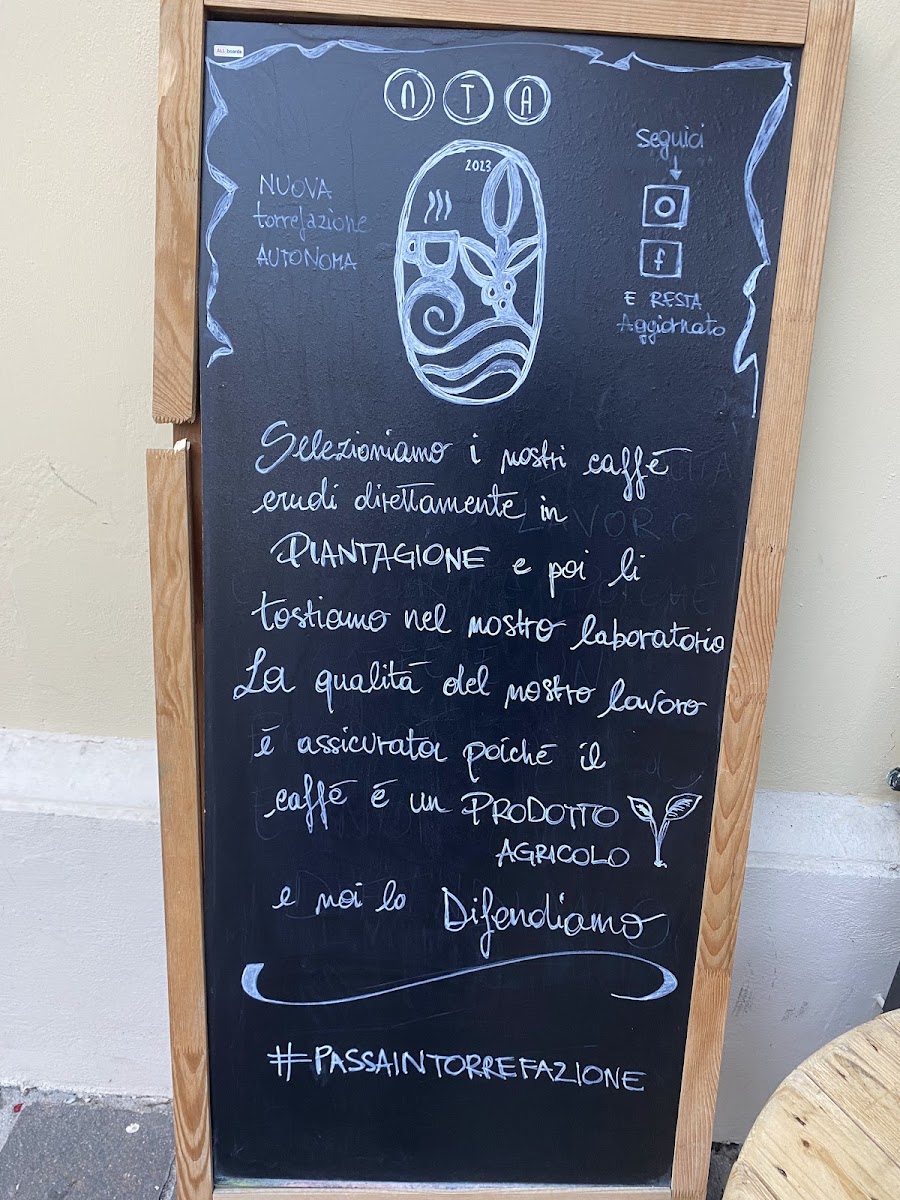 ALL boards
NTA
2023
NUOVA
torrefazione
AUTONOMA
seguici
f
E RESTA
Aggiornato
Selezioniamo i nostri caffè
crudi direttamente in
PIANTAGIONE e poi li
tostiamo nel nostro laboratorio
La qualità del nostro lavoro
é assicurata poiché il
caffé é un PRODOTTO
AGRICOLO
e noi lo Difendiamo
#PASSAINTORREFAZIONE